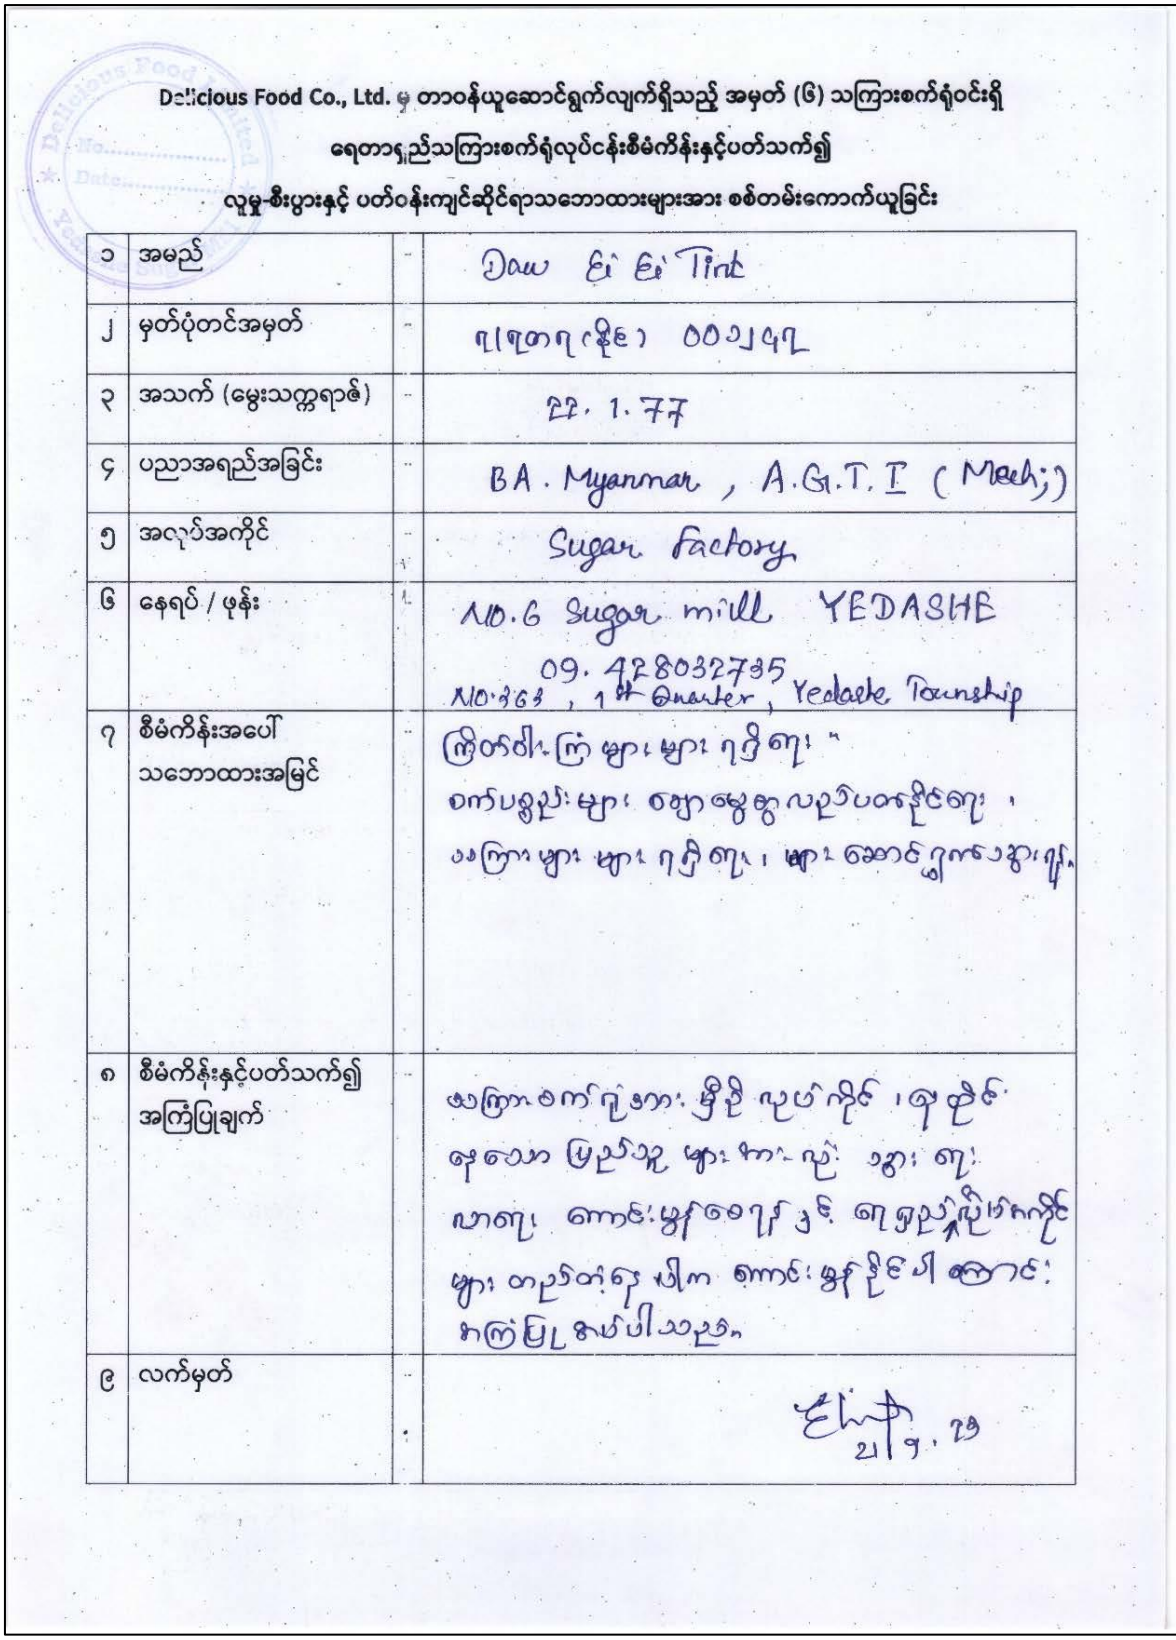 Delicious Food Limited
No..................
Date..................
Yedashe Sugar Mill
Delicious Food Co., Ltd. မှ တာဝန်ယူဆောင်ရွက်လျက်ရှိသည့် အမှတ် (၆) သကြားစက်ရုံဝင်းရှိ
ရေတာရှည်သကြားစက်ရုံလုပ်ငန်းစီမံကိန်းနှင့်ပတ်သက်၍
လူမှု-စီးပွားနှင့် ပတ်ဝန်းကျင်ဆိုင်ရာသဘောထားများအား စစ်တမ်းကောက်ယူခြင်း
၁ အမည် - Daw Ei Ei Tint
၂ မှတ်ပုံတင်အမှတ် - ၇/ရတရ(နိုင်) ၀၀၁၂၄၇
၃ အသက် (မွေးသက္ကရာဇ်) - 22. 1. 77
၄ ပညာအရည်အခြင်း - BA. Myanmar, A.G.T.I (Mech;)
၅ အလုပ်အကိုင် - Sugar Factory
၆ နေရပ် / ဖုန်း - NO.6 Sugar mill YEDASHE
09. 428032735
NO.363, 1st Quarter, Yedashe Township
၇ စီမံကိန်းအပေါ် သဘောထားအမြင် - ကြိတ်ဝါးကြံများများရရှိရေး
စက်ပစ္စည်းများ ချောမွေ့စွာလည်ပတ်နိုင်ရေး ၊
သကြားများများရရှိရေး ၊ များဆောင်ရွက်သွားရန်။
၈ စီမံကိန်းနှင့်ပတ်သက်၍ အကြံပြုချက် - သကြားစက်ရုံအား မှီခို လုပ်ကိုင် ၊
နေသော ပြည်သူများအားလည်း သွားရေး
လာရေး ကောင်းမွန်စေရန်နှင့် ရေရှည်လုပ်ကိုင်
များ တည်တံ့နေပါက ကောင်းမွန်နိုင်ပါကြောင်း
အကြံပြုအပ်ပါသည်။
၉ လက်မှတ် -
21/9. 23